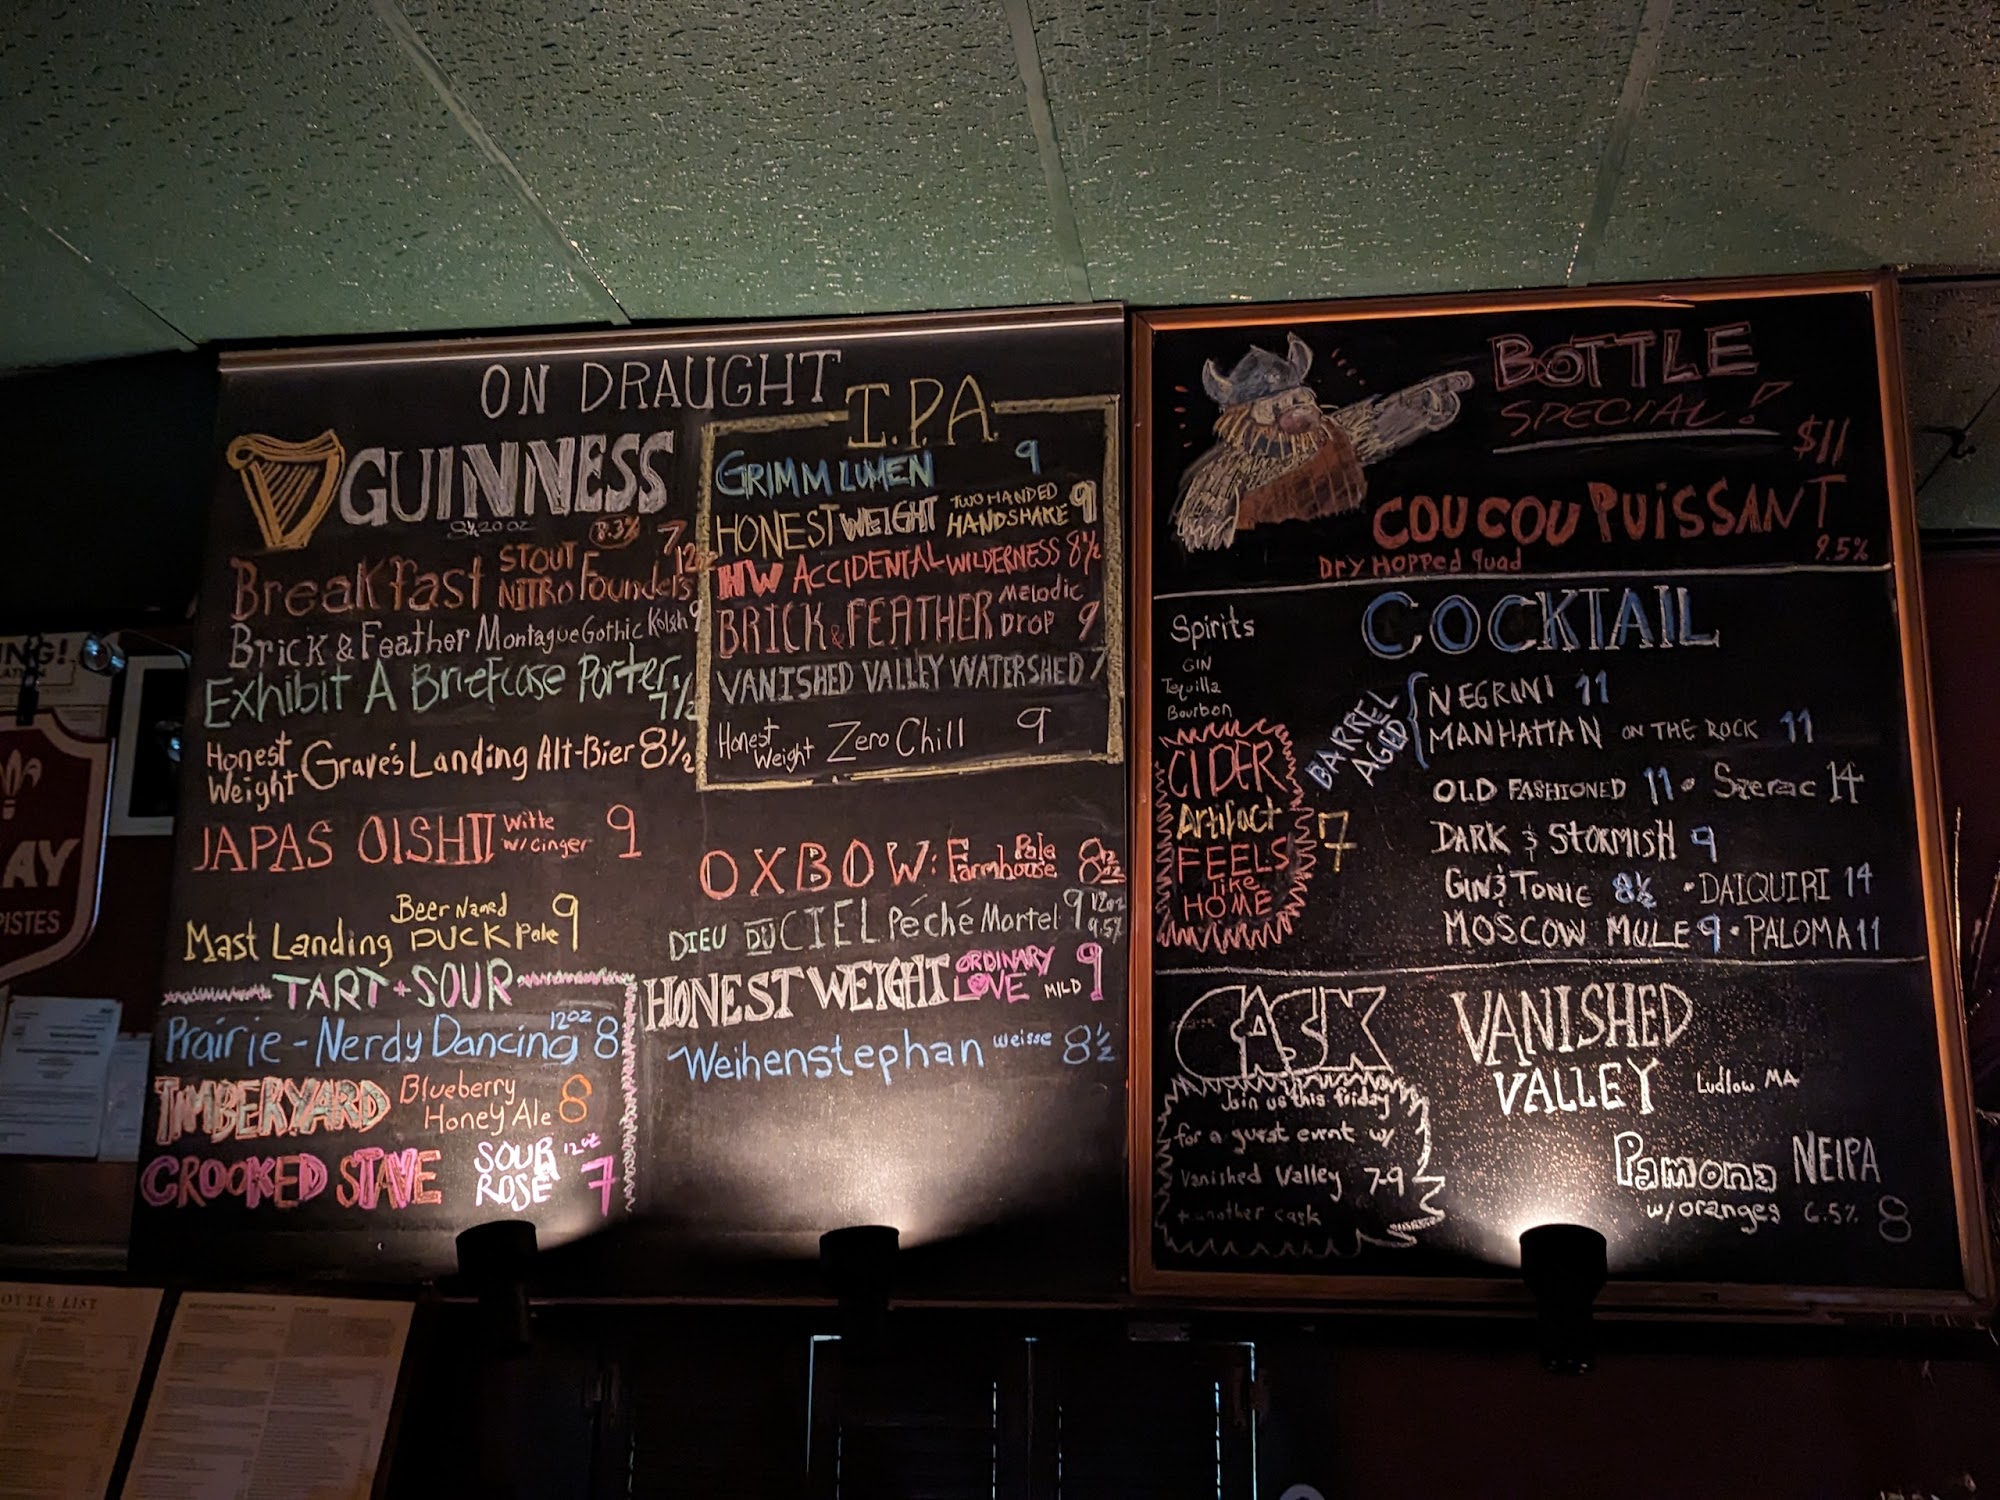 ON DRAUGHT
GUINNESS
20 oz
Breakfast STOUT NITRO Founders 8.3% 7 12oz
Brick & Feather Montague Gothic Kolsh 9
Exhibit A Briefcase Porter 7 1/2
Honest Weight Grave's Landing Alt-Bier 8 1/2
JAPAS OISHII Witte w/Ginger 9
Mast Landing Beer Named DUCK Pale 9
TART + SOUR
Prairie - Nerdy Dancing 12oz 8
TIMBERYARD Blueberry Honey Ale 8
CROOKED STAVE SOUR ROSE 12oz 7
I.P.A
GRIMM LUMEN 9
HONEST WEIGHT TWO HANDED HANDSHAKE 9
HW ACCIDENTAL WILDERNESS 8 1/2
BRICK & FEATHER Melodic Drop 9
VANISHED VALLEY WATERSHED 7
Honest Weight Zero Chill 9
OXBOW: Farmhouse Pale 8 12oz
DIEU DU CIEL Péché Mortel 9 12oz 9.5%
HONEST WEIGHT ORDINARY LOVE MILD 9
Weihenstephan Weisse 8 1/2
BOTTLE
SPECIAL!
$11
COUCOU PUISSANT
Dry Hopped Quad 9.5%
Spirits
GIN
Tequilla
Bourbon
CIDER
Artifact
FEELS
like
HOME
7
COCKTAIL
BARREL AGED
NEGRINI 11
MANHATTAN ON THE ROCK 11
OLD FASHIONED 11 • Szerac 14
DARK & STORMISH 9
GIN & TONIC 8 1/2 • DAIQUIRI 14
MOSCOW MULE 9 • PALOMA 11
CASK
Join us this friday
for a guest event w/
Vanished Valley 7-9
+ another cask
VANISHED
VALLEY Ludlow MA
Pamona NEIPA
w/oranges 6.5% 8
BOTTLE LIST
AY
PISTES